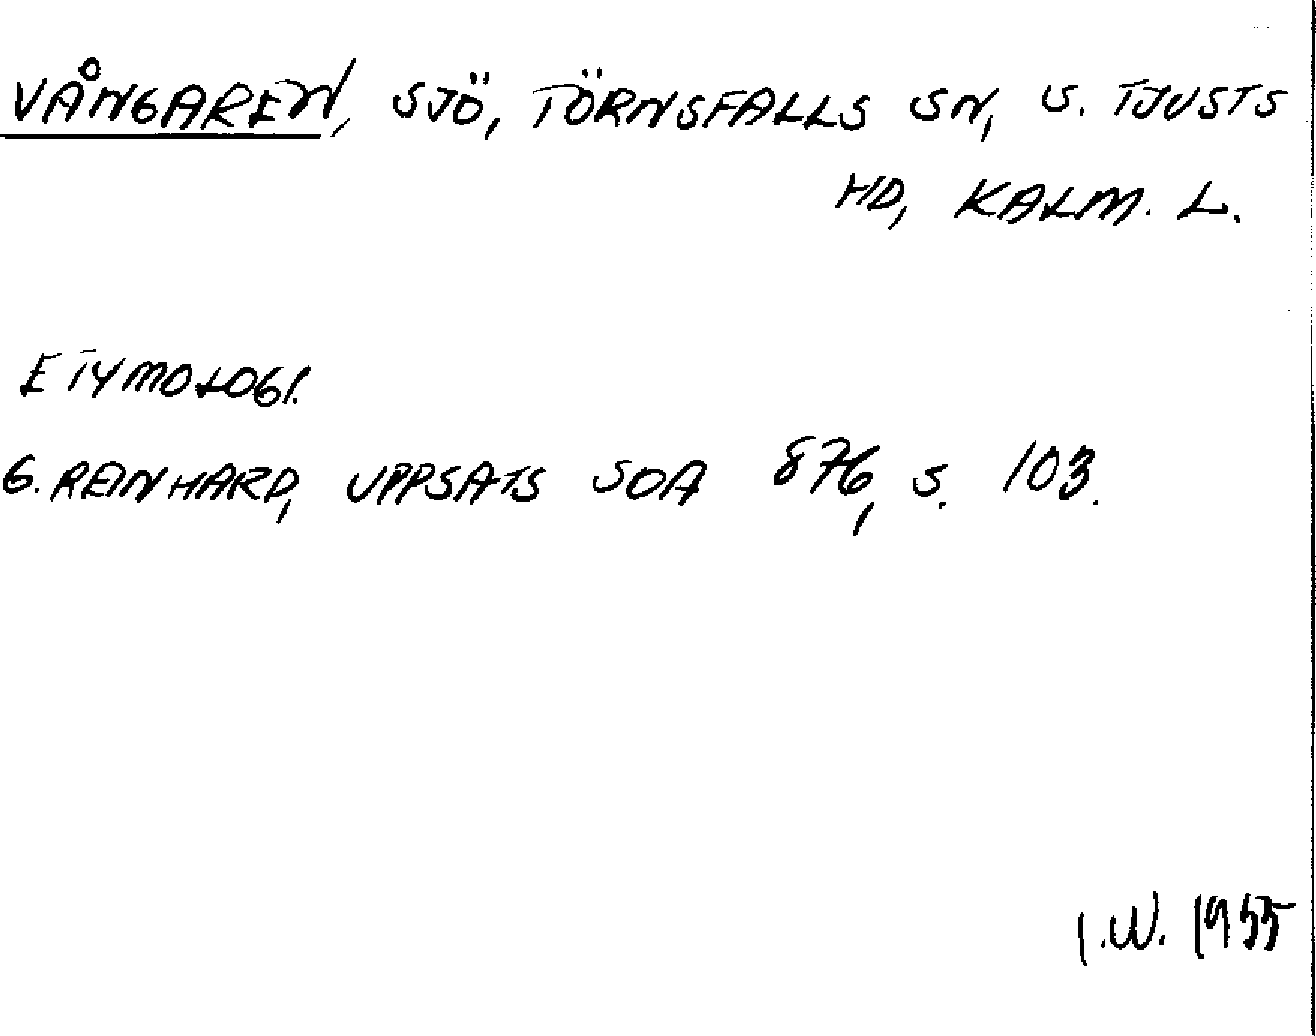 VÅNGAREN, SJÖ, TÖRNSFALLS SN, S. TJUSTS
HD, KALM. L.
ETYMOLOGI.
G. REINHARD, UPPSATS SOA 876, S. 103.
I.W. 1955